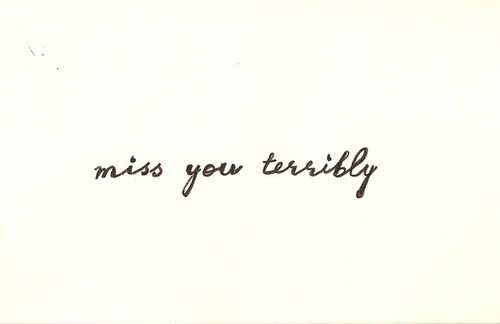 miss you terribly